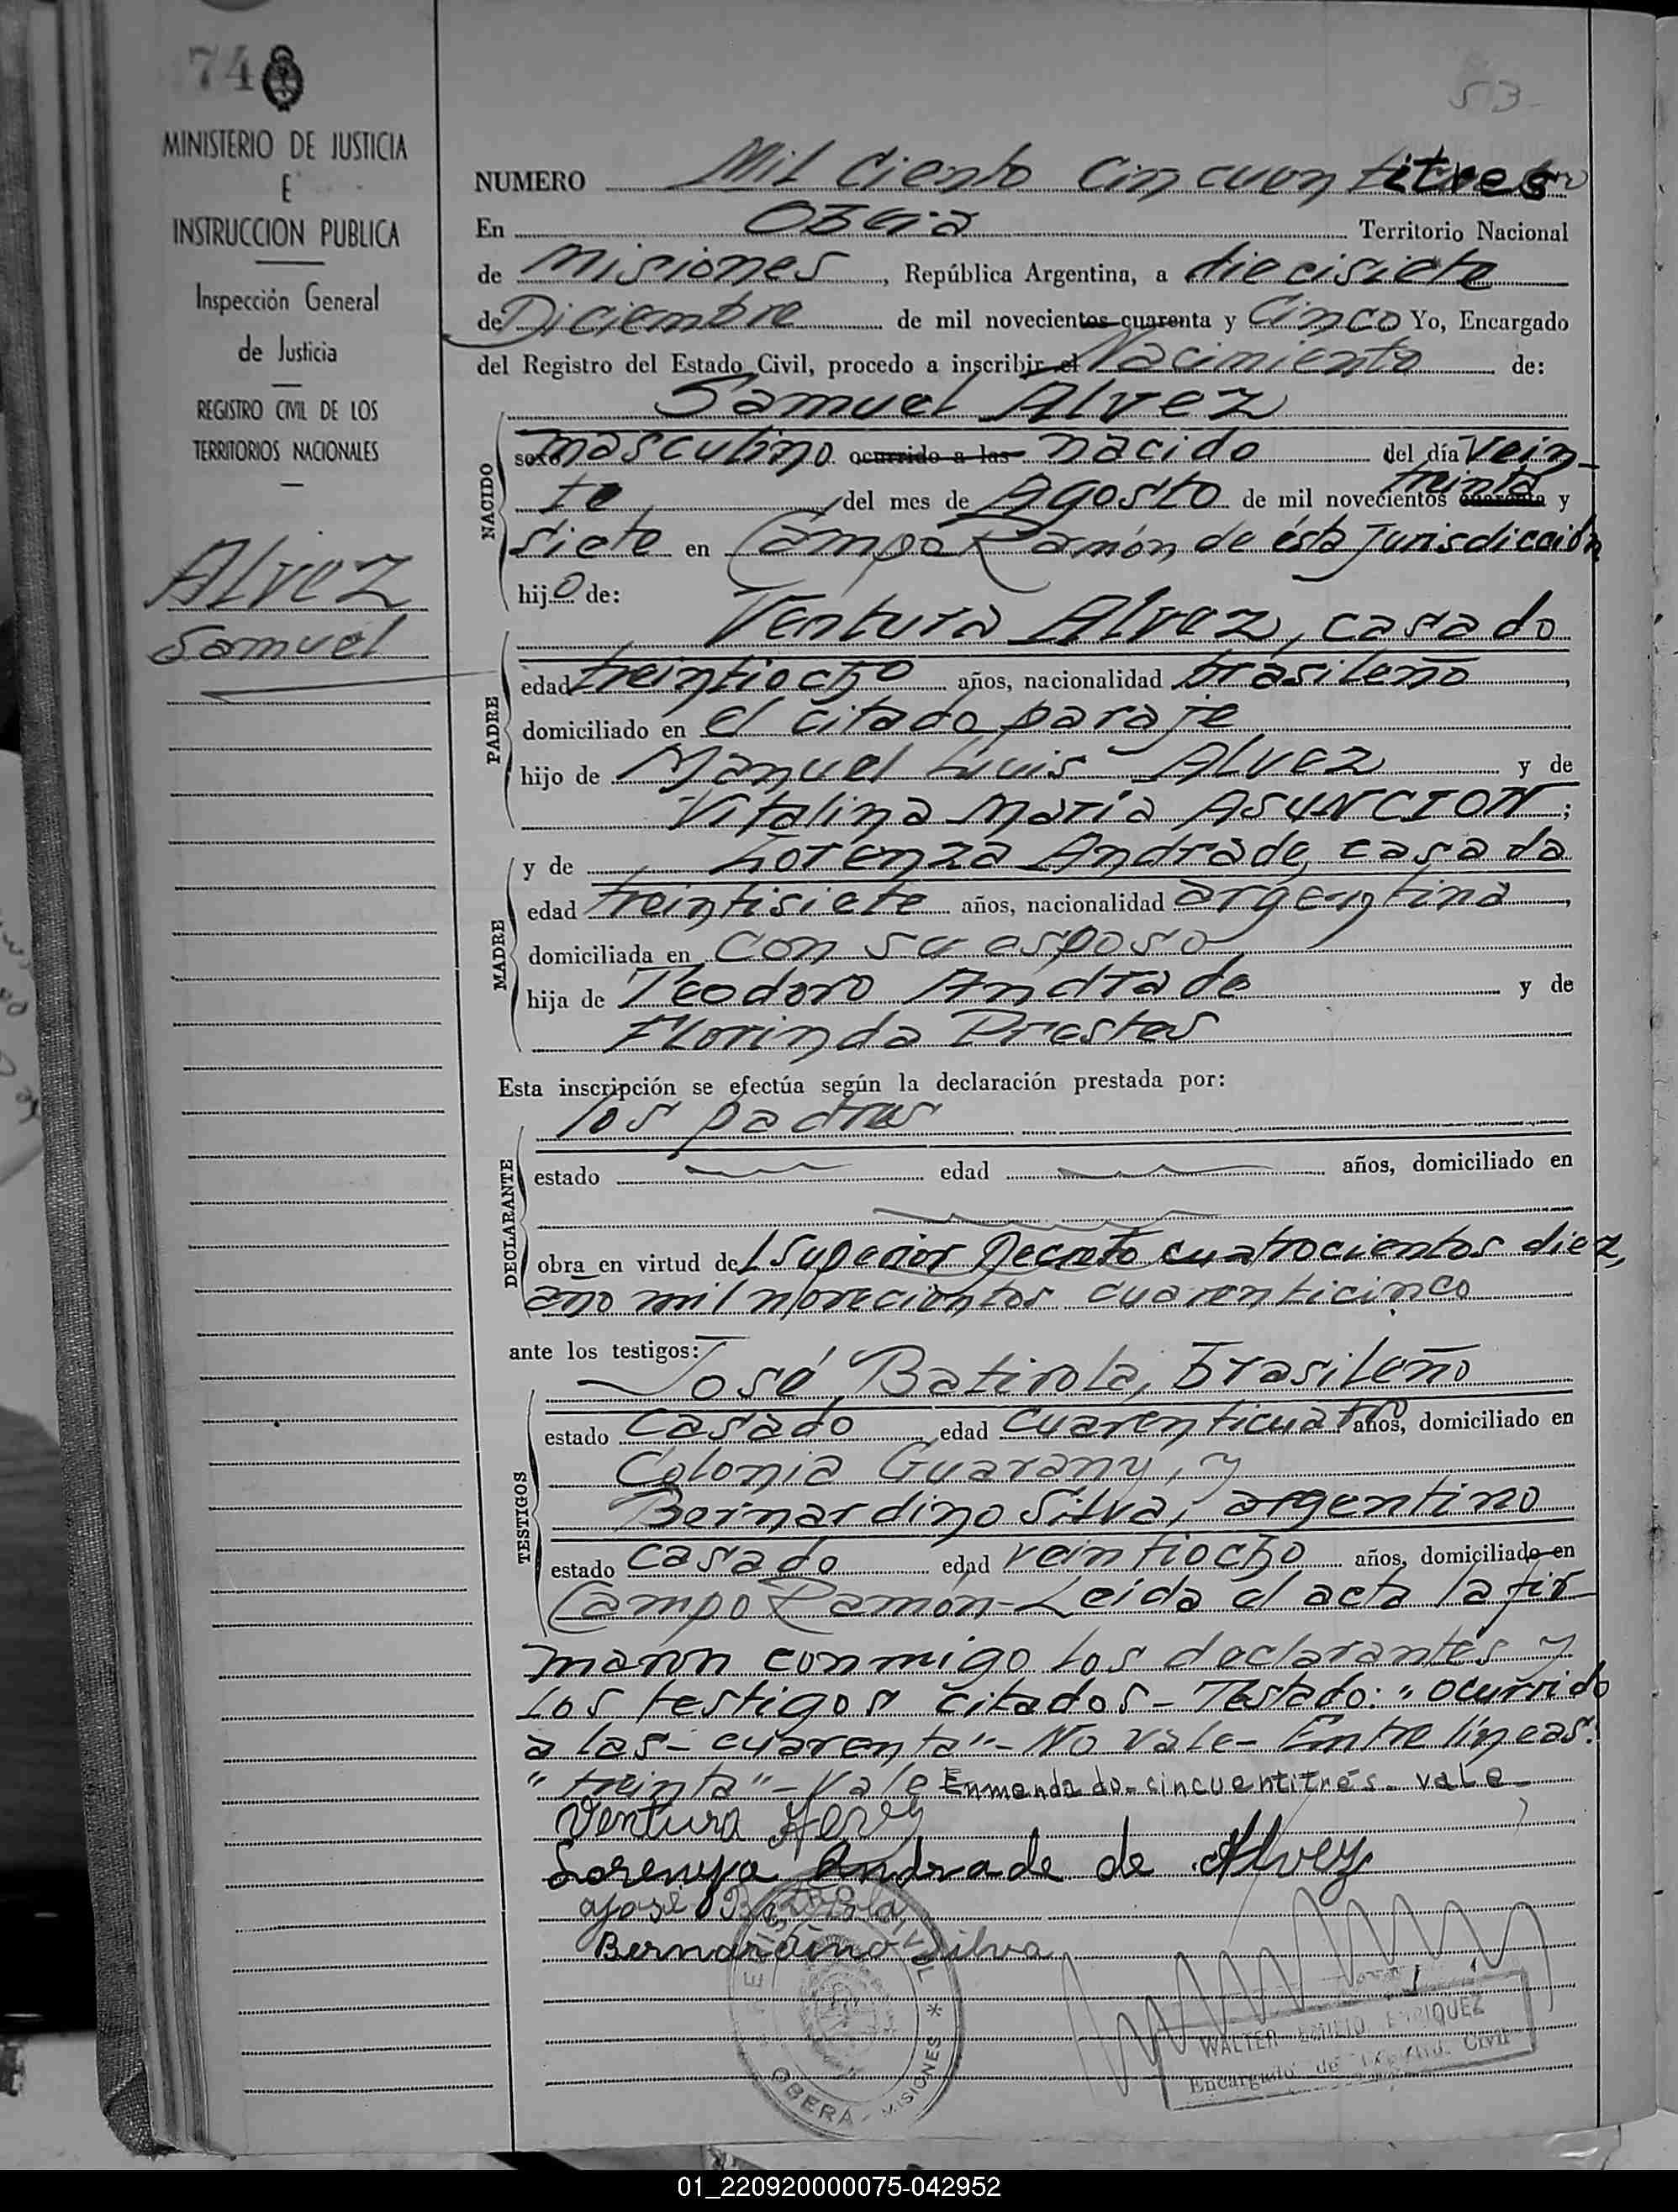 74
MINISTERIO DE JUSTICIA
E
INSTRUCCION PUBLICA
Inspección General
de Justicia
REGISTRO CIVIL DE LOS
TERRITORIOS NACIONALES
Alvez
Samuel
53
NUMERO Mil Ciento Cincuentitres
En Oberá Territorio Nacional
de Misiones, República Argentina, a diecisiete
de Diciembre de mil novecientos cuarenta y Cinco Yo, Encargado
del Registro del Estado Civil, procedo a inscribir el Nacimiento de:
Samuel Alvez
NACIDO
sexo masculino ocurrido a las nacido del día vein-
te del mes de Agosto de mil novecientos cuarenta treinta y
siete en Campo Ramón de ésta Jurisdicción
hijo de:
Ventura Alvez, casado
PADRE
edad treintiocho años, nacionalidad brasileño,
domiciliado en el citado paraje
hijo de Manuel Luis Alvez y de
Vitalina Maria ASUNCION;
MADRE
y de Lorenza Andrade, casada
edad treintisiete años, nacionalidad argentina,
domiciliada en con su esposo
hija de Teodoro Andrade y de
Florinda Prestes
Esta inscripción se efectúa según la declaración prestada por:
los padres
DECLARANTE
estado edad años, domiciliado en
obra en virtud del Superior Decreto cuatrocientos diez,
año mil novecientos cuarenticinco
ante los testigos:
José Batirola, brasileño
TESTIGOS
estado Casado edad cuarenticuatro años, domiciliado en
Colonia Guarany, y
Bernardino Silva, argentino
estado casado edad veintiocho años, domiciliado en
Campo Ramón- Leida el acta la fir
maron conmigo los declarantes y
los testigos citados- Testado: "ocurrido
a las- cuarenta"- No vale- Entre líneas:
"treinta"- Vale Enmendado- cincuentitrés- vale-
Ventura Alvez
Lorenza Andrade de Alvez
José Batirola
Bernardino Silva
REGISTRO CIVIL *
OBERA - MISIONES
WALTER EMILIO ENRIQUEZ
Encargado del Registro Civil
01_220920000075-042952